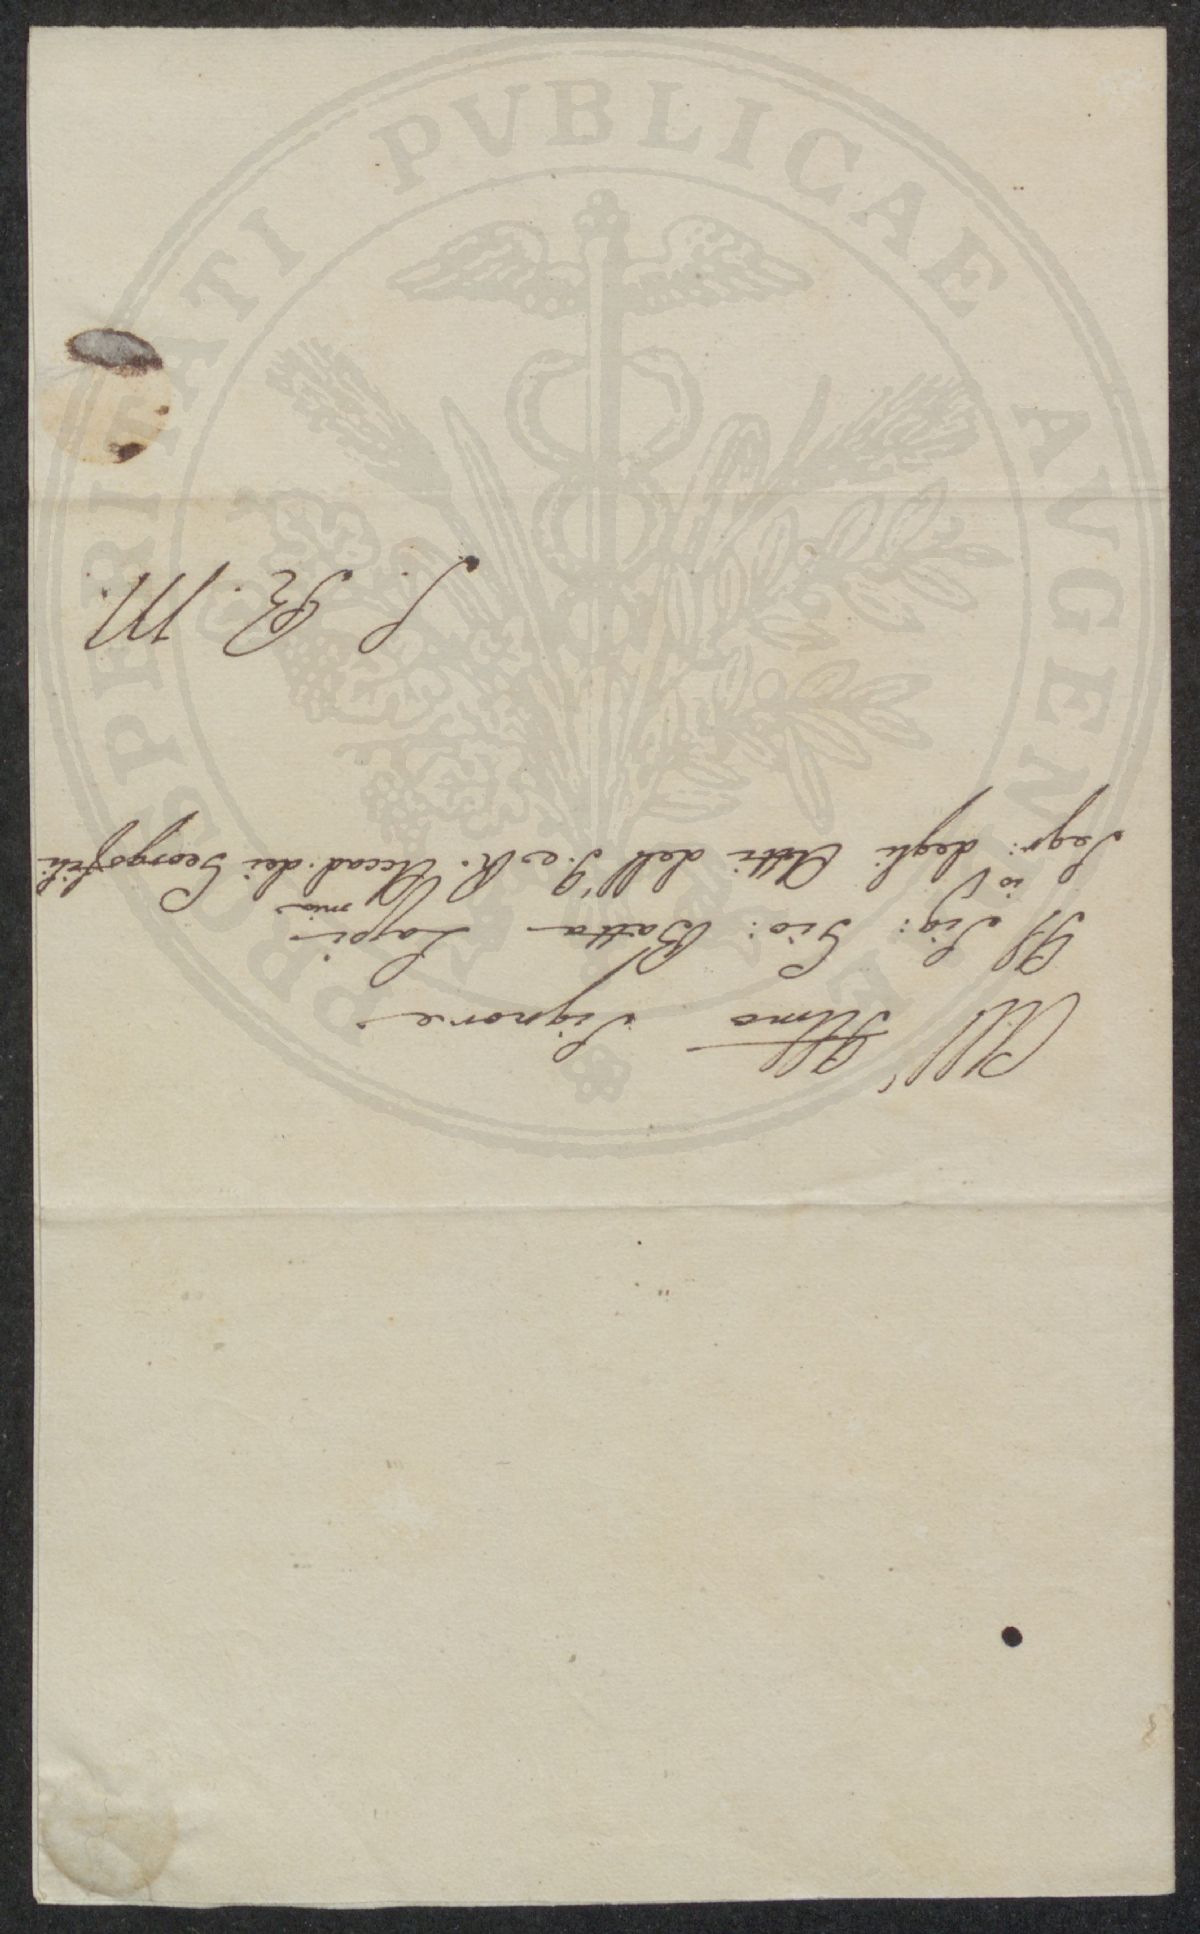 All' Illmo Signore
Il Sig: Gio: Batta Lapi
Segr:io degli Atti dell' I. e R. Accad:mia dei Georgofili
S. P. M.
PROSPERITATI PVBLICAE AVGENDAE